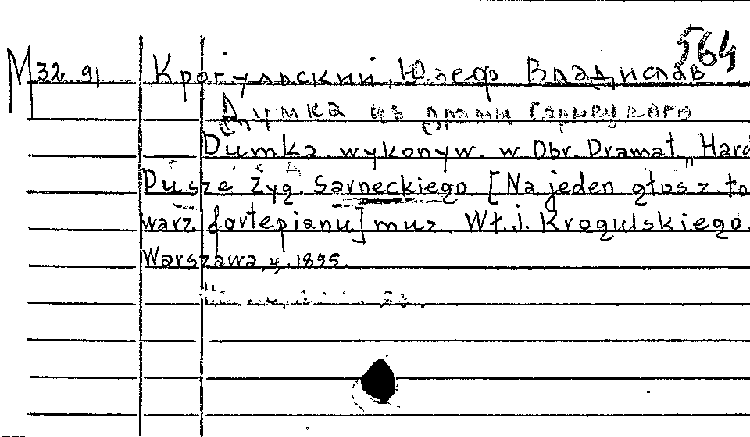 564
M 32. 91 Крогульский, Юзеф Владислав
Думка из драмы
Dumka wykonyw. w Obr. Dramat. „Hard
Dusze Zyg. Sarneckiego [Na jeden głos z to
warz. fortepianu] muz. Wł. J. Krogulskiego.
Warszawa, 4, 1895.